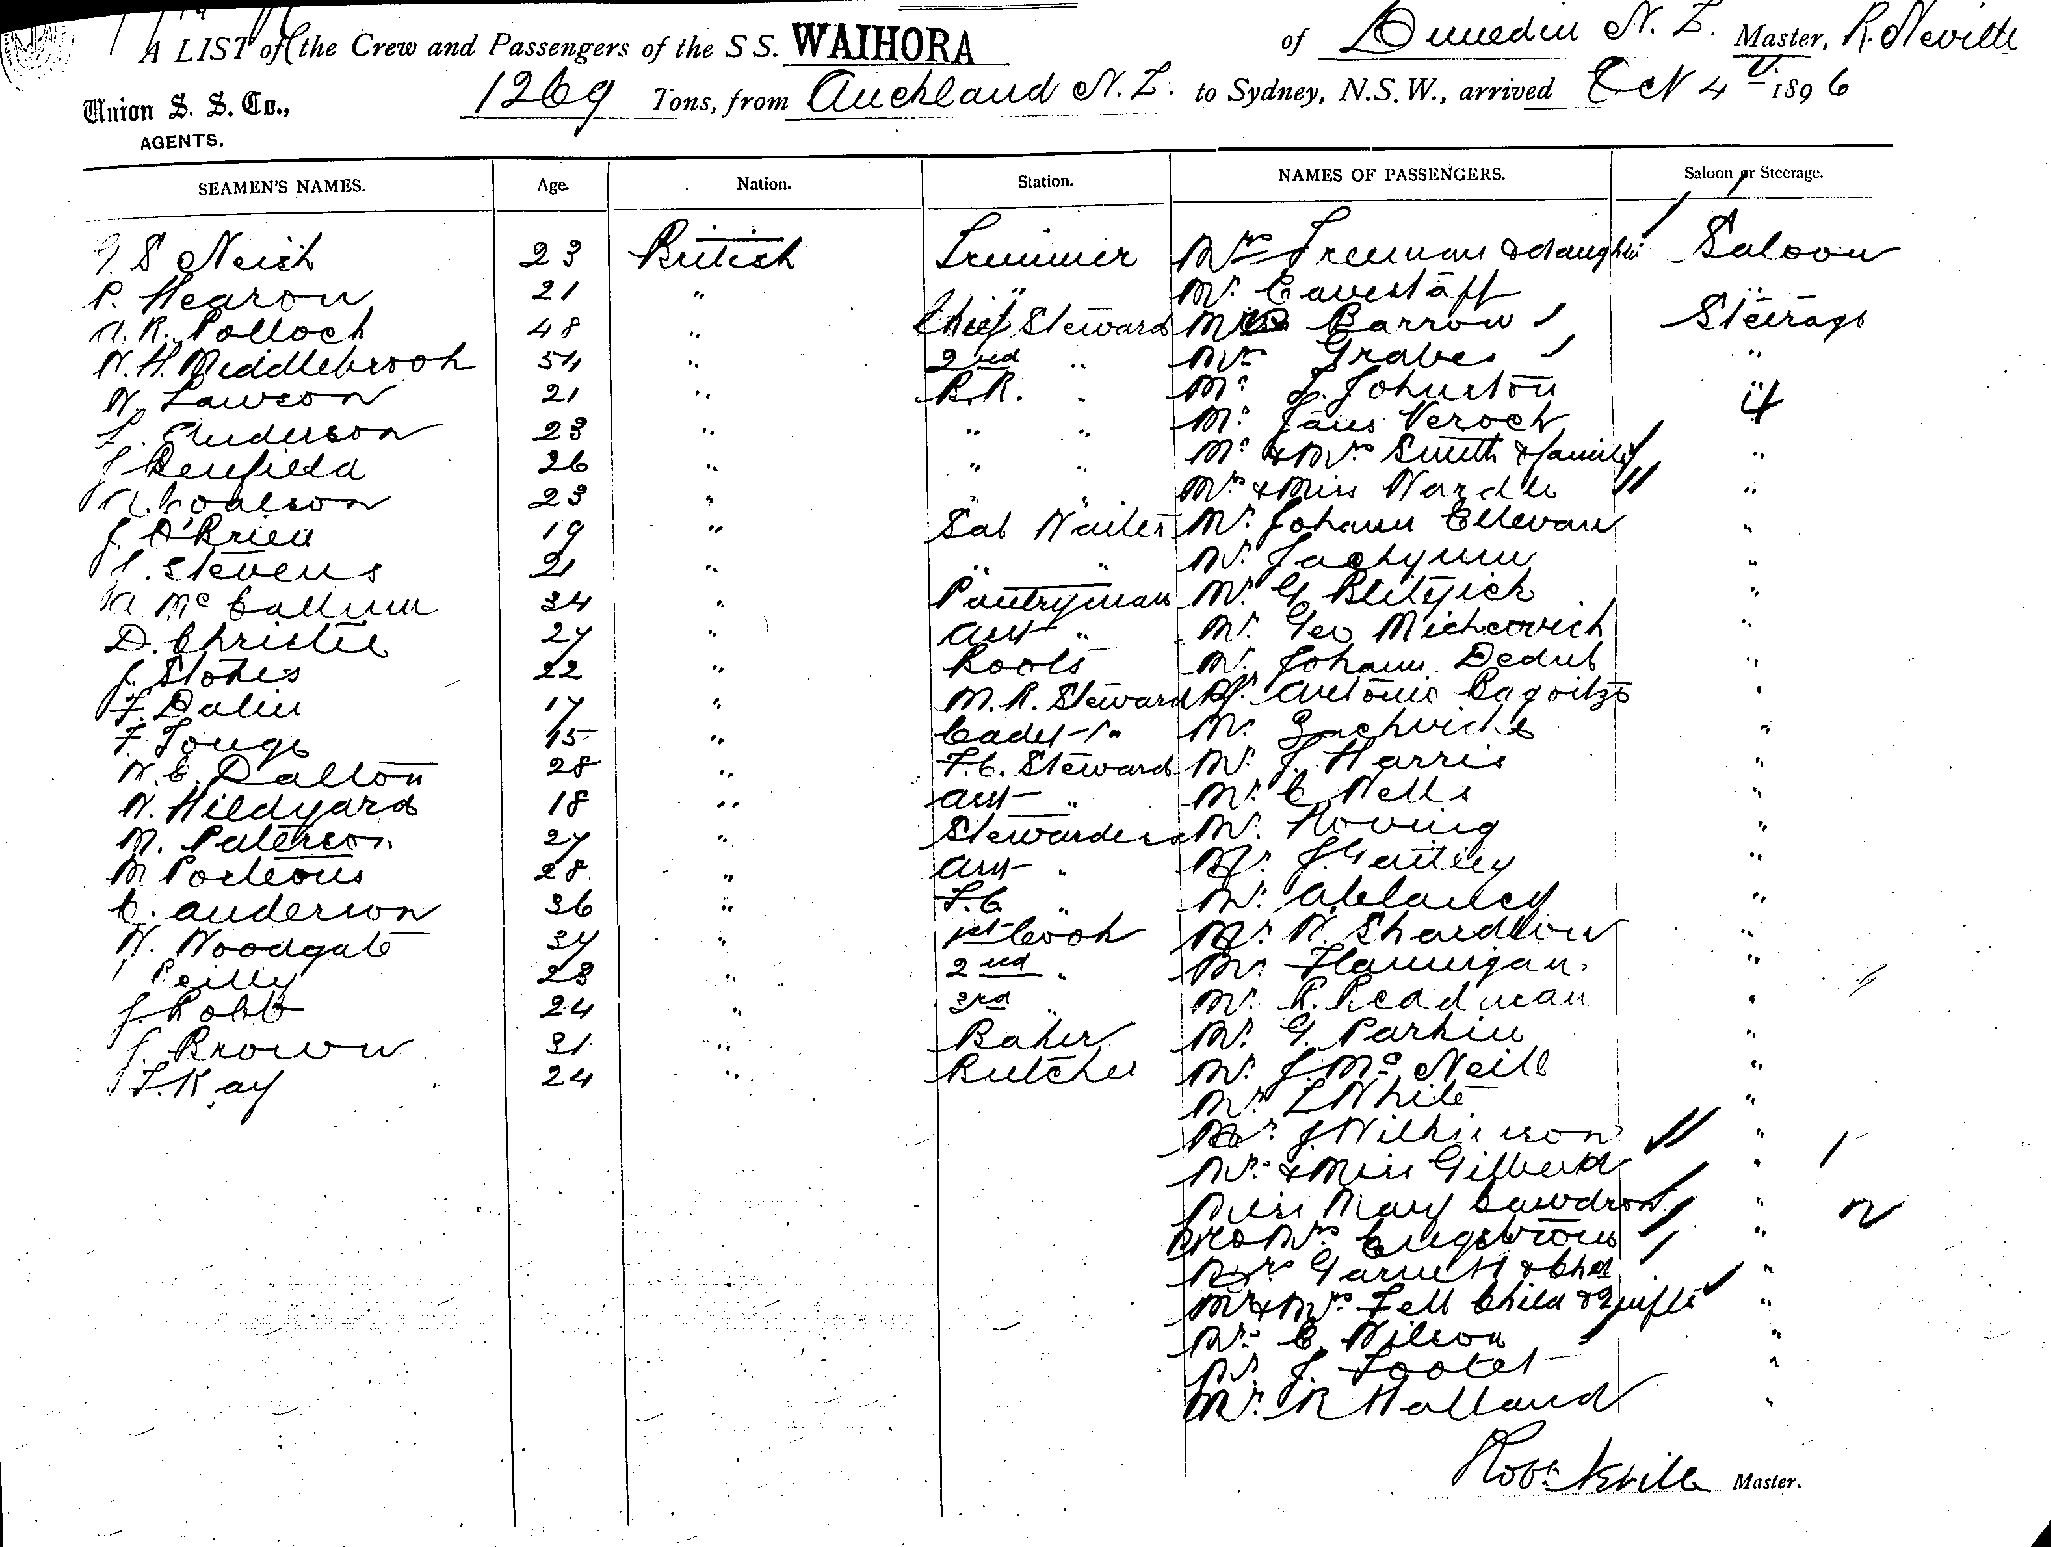 A LIST of the Crew and Passengers of the S S. WAIHORA of Dunedin N. Z. Master, R. Neville
Union S. S. Co., 1269 Tons, from Auckland N. Z. to Sydney, N.S.W., arrived Oct 4 1896
AGENTS.
SEAMEN'S NAMES. Age. Nation. Station. NAMES OF PASSENGERS. Saloon or Steerage.
S Neish 23 British Trimmer Mrs Freeman & daughter Saloon
P. Hearon 21 " " Mr. Cavestaff "
A. R. Pollock 48 " Chief Steward Barrow Steerage
W. H. Middlebrook 54 " 2nd " Mrs Graves "
W. Lawson 21 " B.R. " Mr J. Johnston "
Anderson 23 " " " Mr Veroch
J Benfield 26 " " " Mr & Mrs Smith & family "
Coalson 23 " " " Mrs & Miss Wardle "
J. O'Brien 19 " Sal Waiter Mr. Johann Ellevan "
J. Stevens 21 " " " Mr.
A McCallum 34 " Pantryman Mr. G "
D. Christie 27 " Asst " Mr. Geo Micheovich "
J. Stokes 22 " Boots Mr. Johann Dedub "
F. Dalin 17 " M. R. Steward Mr. Antonio "
F. Tonge 15 " Cadet " Mr "
W. C. Dalton 28 " F.C. Steward Mr. J. Harris "
W. Hildyard 18 " Asst " Mr. C Wells "
M. Paterson 27 " Stewardess Mr. Hoving "
M Porteous 28 " Asst " Mr. J. "
C. Anderson 36 " F.C " Mr. "
W. Woodgate 34 " 1st Cook Mr. W. Shardlow "
Reilly 23 " 2nd " Mr. Flannigan "
J. Robb 24 " 3rd " Mr. R. Readman "
J. Brown 31 " Baker Mr. G. Parkin "
T. Kay 24 " Butcher Mr. J. McNeill "
Mr. L White "
J. Wilkinson "
& Miss Gilbert "
Miss Mary Cawdron "
Mrs Engstrom "
Mrs Garnett & Chd "
Mr & Mrs Fell Child & 2 infts "
Mr. C. Wilson "
Mr. J. Footet "
Mr. R Holland "
Robt Neville Master.